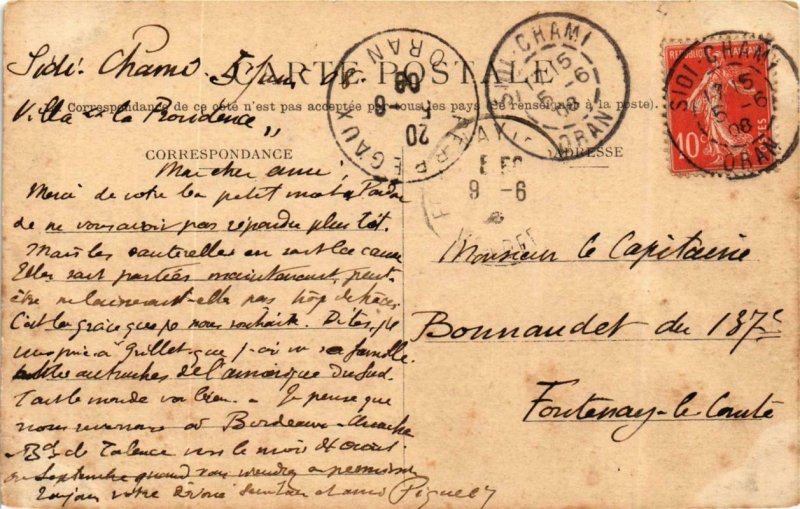 Sidi Chami 5 Juin 08
Villa "la Providence"
CARTE POSTALE
Correspondance de ce côté n'est pas acceptée par tous les pays (Se renseigner à la poste).
CORRESPONDANCE
ADRESSE
Mon cher ami!
Merci de votre petit mot Pardon
de ne vous avoir pas répondu plus tôt.
Mais les sauterelles en sont la cause
Elles sont parties maintenant, peut-
être ne laisseront-elle pas trop de traces.
C'est la grace que je nous souhaite. Dites, je
vous prie à Grillet que j'ai vu sa famille
autruches de l'amérique du Sud.
Tout le monde va bien. Je pense que
nous reverrons à Bordeaux
Bd de Talence vers le mois d'Août
ou Septembre quand vous viendrez en permission
Toujours votre dévoué
Monsieur le Capitaine
Bonnaudet du 137e
Fontenay-le-Comte
REGAUX
ORAN
20
5-6
08
SIDI-CHAMI
15
5-6
08
ORAN
9-6
REPUBLIQUE FRANÇAISE
10c
POSTES
SIDI-CHAMI
15
5-6
08
ORAN